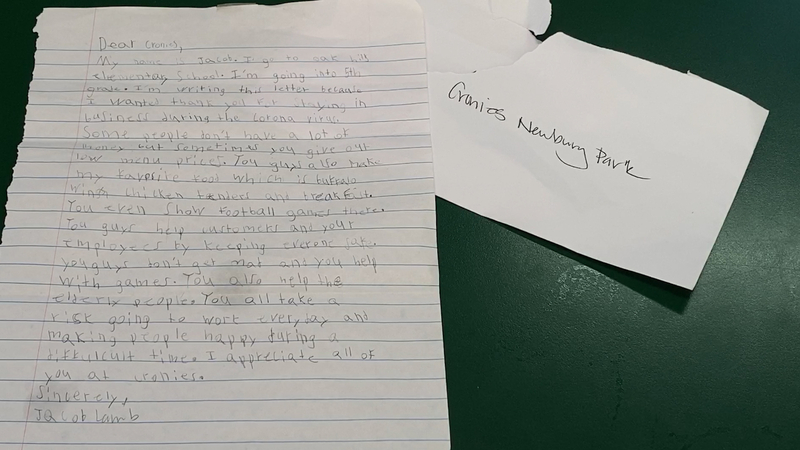 Dear Cronies,
My name is Jacob. I go to oak hills
elementary School. I'm going into 5th
grade. I'm writing this letter because
I wanted thank you for staying in
business during the corona virus.
Some people don't have a lot of
money but sometimes you give out
low menu prices. You guys also make
my favorite food which is buffalo
wings chicken tenders and breakfast.
You even show football games there.
You guys help customers and your
employees by keeping everone safe.
you guys don't get mat and you help
with games. You also help the
elderly people. You all take a
risk going to work everyday and
making people happy during a
difficulcult time. I appreciate all of
you at cronies.
Sincerely,
Jacob Lamb
Cronies Newbury Park